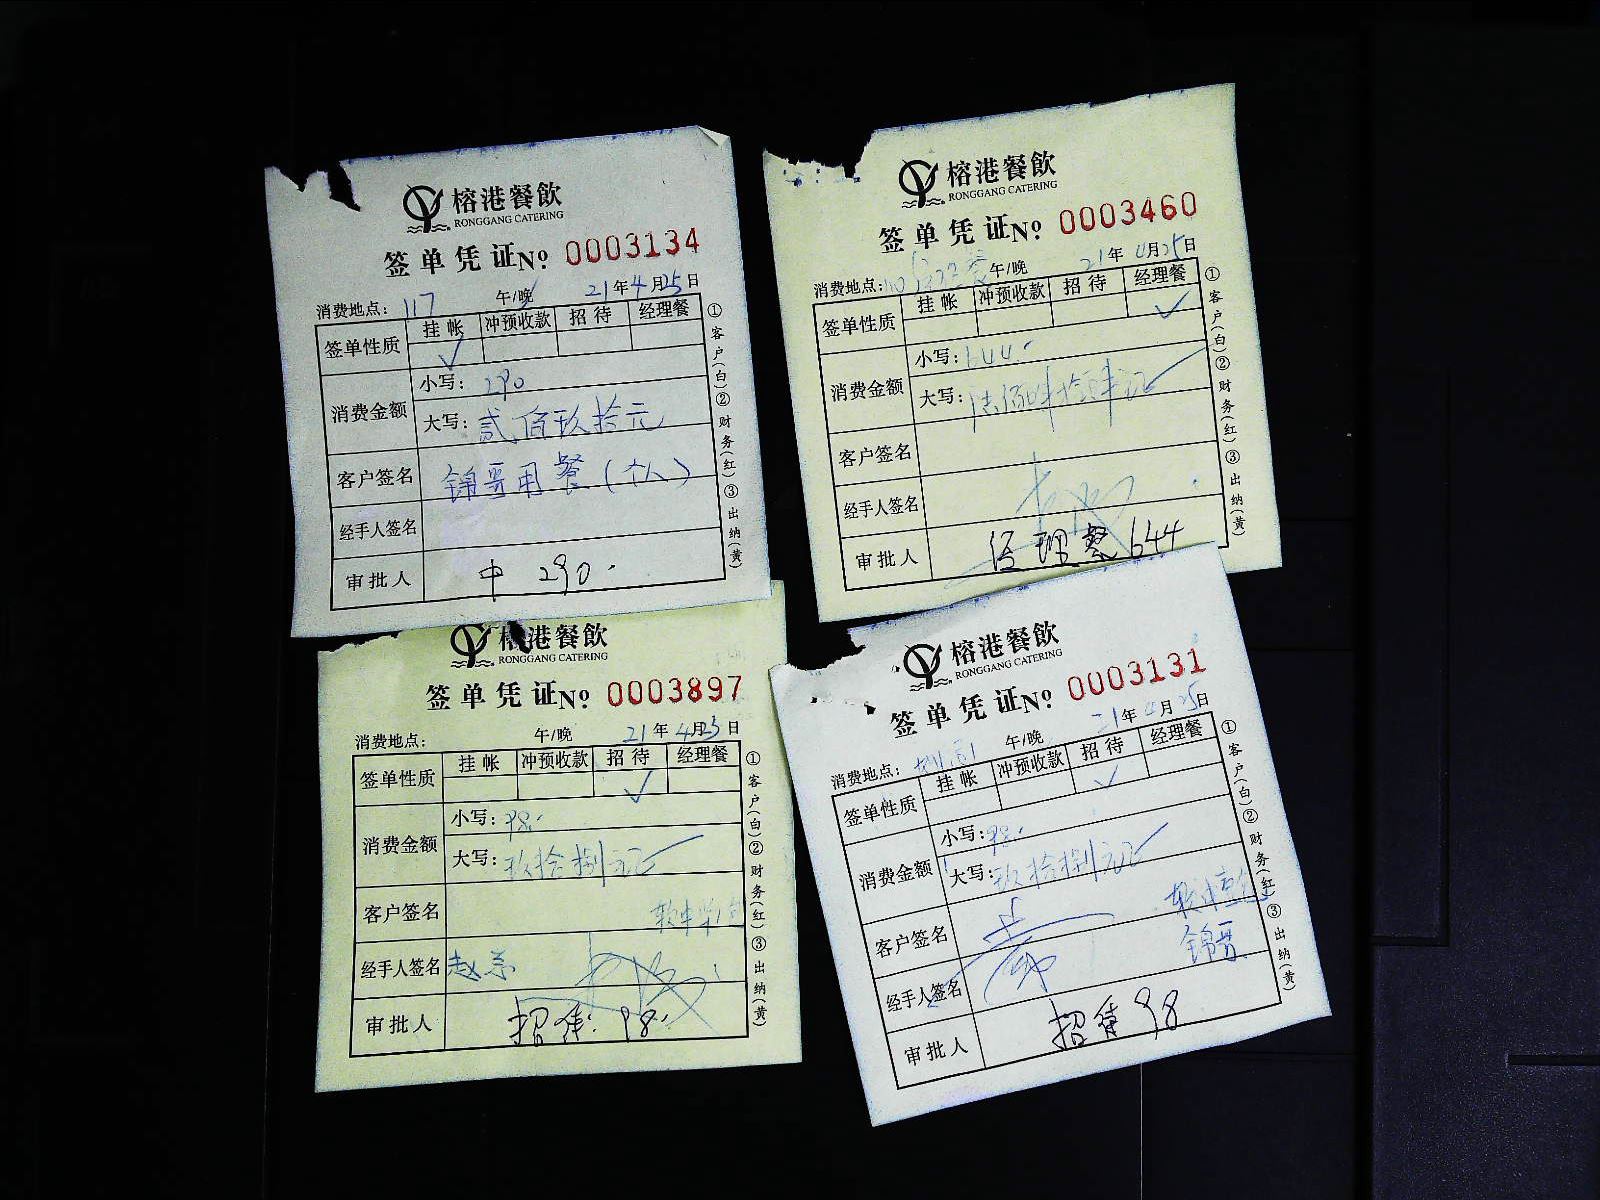 榕港餐飲
RONGGANG CATERING
签单凭证No 0003134
消费地点：117 午/晚 21年4月25日
签单性质 挂帐 冲预收款 招待 经理餐
✓
消费金额 小写：290
大写：贰佰玖拾元
客户签名 锦哥用餐（个人）
经手人签名
审批人 中 290.
①客户（白）②财务（红）③出纳（黄）
榕港餐飲
RONGGANG CATERING
签单凭证No 0003460
消费地点： 午/晚 21年4月25日
签单性质 挂帐 冲预收款 招待 经理餐
✓
消费金额 小写：644.
大写：陆佰肆拾肆元正
客户签名
经手人签名
审批人 经理餐 644
①客户（白）②财务（红）③出纳（黄）
榕港餐飲
RONGGANG CATERING
签单凭证No 0003897
消费地点： 午/晚 21年4月25日
签单性质 挂帐 冲预收款 招待 经理餐
✓
消费金额 小写：98.
大写：玖拾捌元正
客户签名
经手人签名
审批人 招待 98.
①客户（白）②财务（红）③出纳（黄）
榕港餐飲
RONGGANG CATERING
签单凭证No 0003131
消费地点： 午/晚 21年4月25日
签单性质 挂帐 冲预收款 招待 经理餐
✓
消费金额 小写：98.
大写：玖拾捌元正
客户签名
锦哥
经手人签名
审批人 招待 98
①客户（白）②财务（红）③出纳（黄）